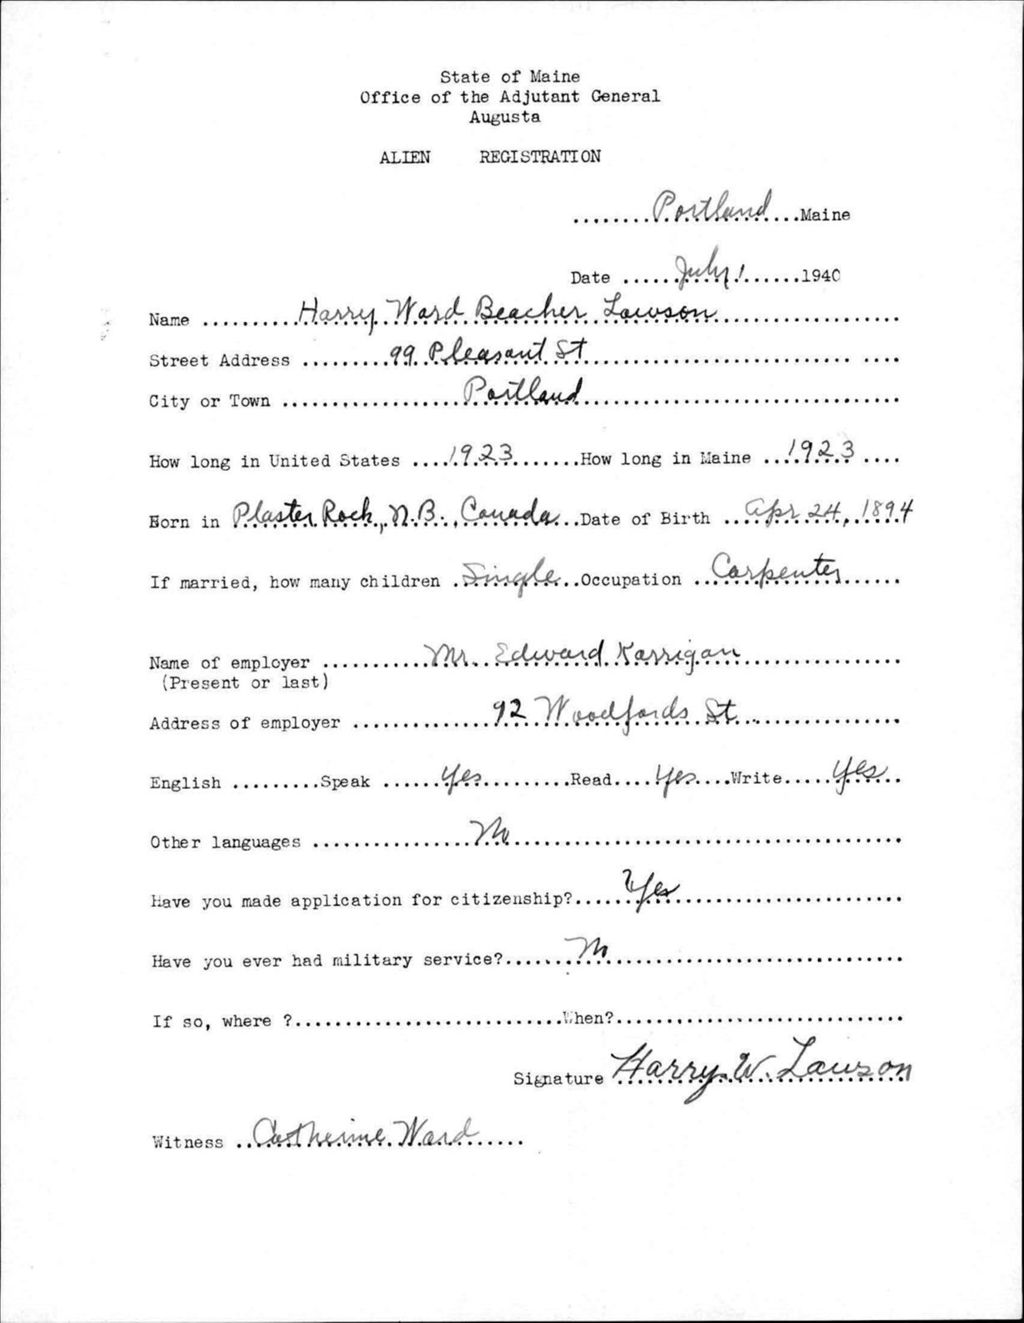 State of Maine
Office of the Adjutant General
Augusta
ALIEN REGISTRATION
........Portland...Maine
Date ......July 1......1940
Name ..........Harry Ward Beacher Lawson..................
Street Address .........99 Pleasant St.............................. ....
City or Town ..................Portland................................
How long in United States ....1923.......How long in Maine ...1923....
Born in Plaster Rock, N.B., Canada...Date of Birth ...Apr 24, 1894
If married, how many children .Single..Occupation ..Carpenter......
Name of employer ...........Mr. Edward Karrigan................
(Present or last)
Address of employer ..............92 Woodfords St................
English .........Speak ......Yes.........Read....Yes....Write.....Yes..
Other languages ................No.......................................
Have you made application for citizenship?......Yes.......................
Have you ever had military service?.......No..............................
If so, where ?...........................When?.............................
Signature Harry W. Lawson
Witness ..Catherine Ward.....